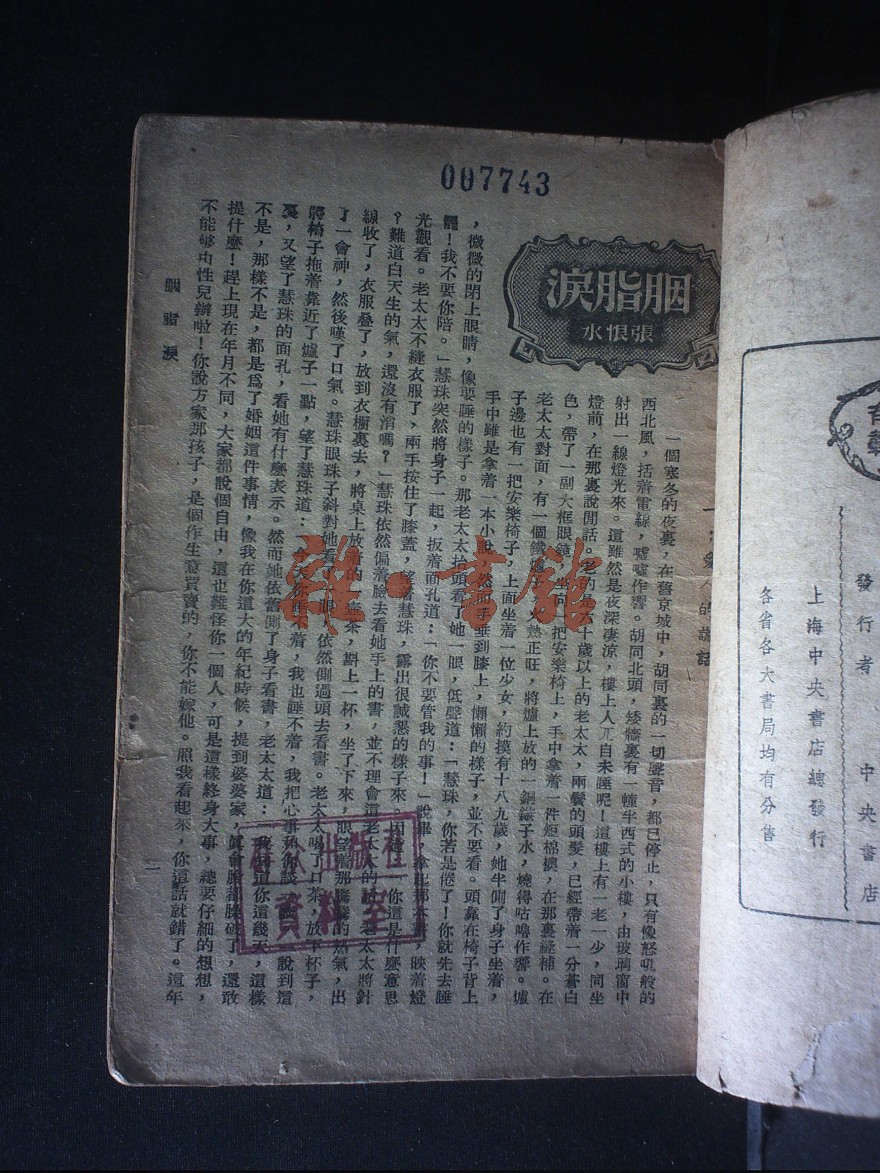 007743
胭脂淚
張恨水
一個寒冬的夜裏,在舊京城中,胡同裏的一切聲音,都已停止,只有像怒吼般的
西北風,括着電線,噓噓作響。胡同北頭,矮牆裏有一幢半西式的小樓,由玻璃窗中
射出一線燈光來。這雖然是夜深凄涼,樓上人兀自未睡呢!這樓上有一老一少,同坐
燈前,在那裏說閒話。老的是六十歲以上的老太太,兩鬢的頭髮,已經帶着一分蒼白
色,帶了一副大框眼鏡,坐向一把安樂椅上,手中拿着一件短棉樓,在那裏縫補。在
老太太對面,有一個鐵爐子,火熱正旺,將爐上放的一銅罐子水,燒得咕嚕作響。爐
子邊也有一把安樂椅子,上面坐着一位少女,約摸有十八九歲,她半側了身子坐着,
手中雖是拿着一本小說,然而手垂到膝上,懶懶的樣子,並不要看。頭靠在椅子背上
,微微的閉上眼睛,像要睡的樣子。那老太太抬頭看了她一眼,低聲道:「慧珠,你若是倦了!你就先去睡
罷!我不要你陪。」慧珠突然將身子一起,扳着面孔道:「你不要管我的事!」說畢,拿起那本書,映着燈
光觀看。老太太不縫衣服了,兩手按住了膝蓋,望着慧珠,露出很誠懇的樣子來。因道:「你這是什麼意思
?難道白天生的氣,還沒有消嗎?」慧珠依然偏着臉去看她手上的書,並不理會這老太太的話。老太太將針
線收了,衣服叠了,放到衣櫥裏去,將桌上放着的一壺茶,斟上一杯,坐了下來,眼望着那騰騰的熱氣,出
了一會神,然後嘆了口氣。慧珠眼珠子斜對她看了一眼,依然側過頭去看書。老太太喝了口茶,放下杯子,
將椅子拖着靠近了爐子一點,望了慧珠道:今天你睡不着,我也睡不着,我把心事和你談談。說到這
裏,又望了慧珠的面孔,看她有什麼表示。然而她依舊側了身子看書,老太太道:我知道你這幾天,這樣
不是,那樣不是,都是爲了婚姻這件事情,像我在你這大的年紀時候,提到婆婆家,眞會臉都臊破了,還敢
提什麼!趕上現在年月不同,大家都說個自由,這也難怪你一個人,可是這樣終身大事,總要仔細的想想,
不能夠由性兒辦啦!你說方家那孩子,是個作生意買賣的,你不能嫁他。照我看起來,你這話就錯了。這年
胭脂淚
一
雜·書館
出版社
資料室
發行者 中央書店
上海中央書店總發行
各省各大書局均有分售